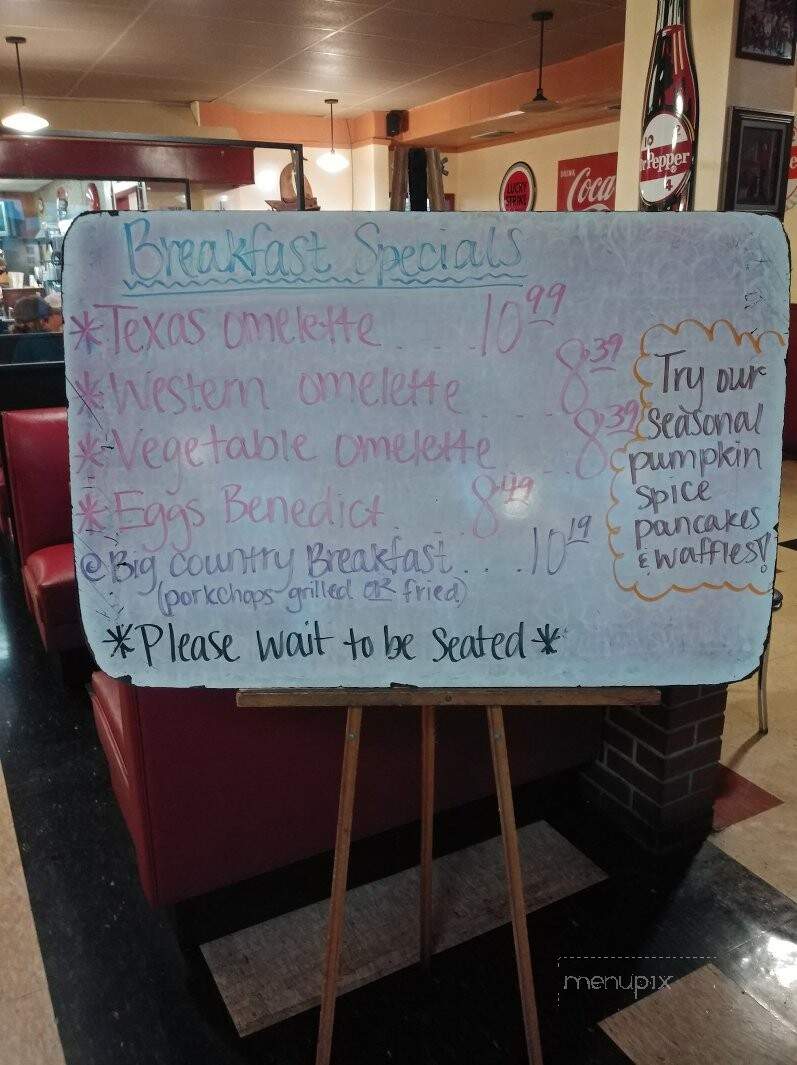 Breakfast Specials
*Texas omelette . . . . 10 99
*Western omelette . . . . 8 39
*Vegetable omelette . . 8 39
*Eggs Benedict . . . . 8 49
@Big Country Breakfast . . . . 10 19
(porkchops-grilled OR fried)
*Please wait to be Seated*
Try our
Seasonal
pumpkin
Spice
pancakes
& waffles!
LUCKY
STRIKE
DRINK
Coca
10
Pepper
4
menupix